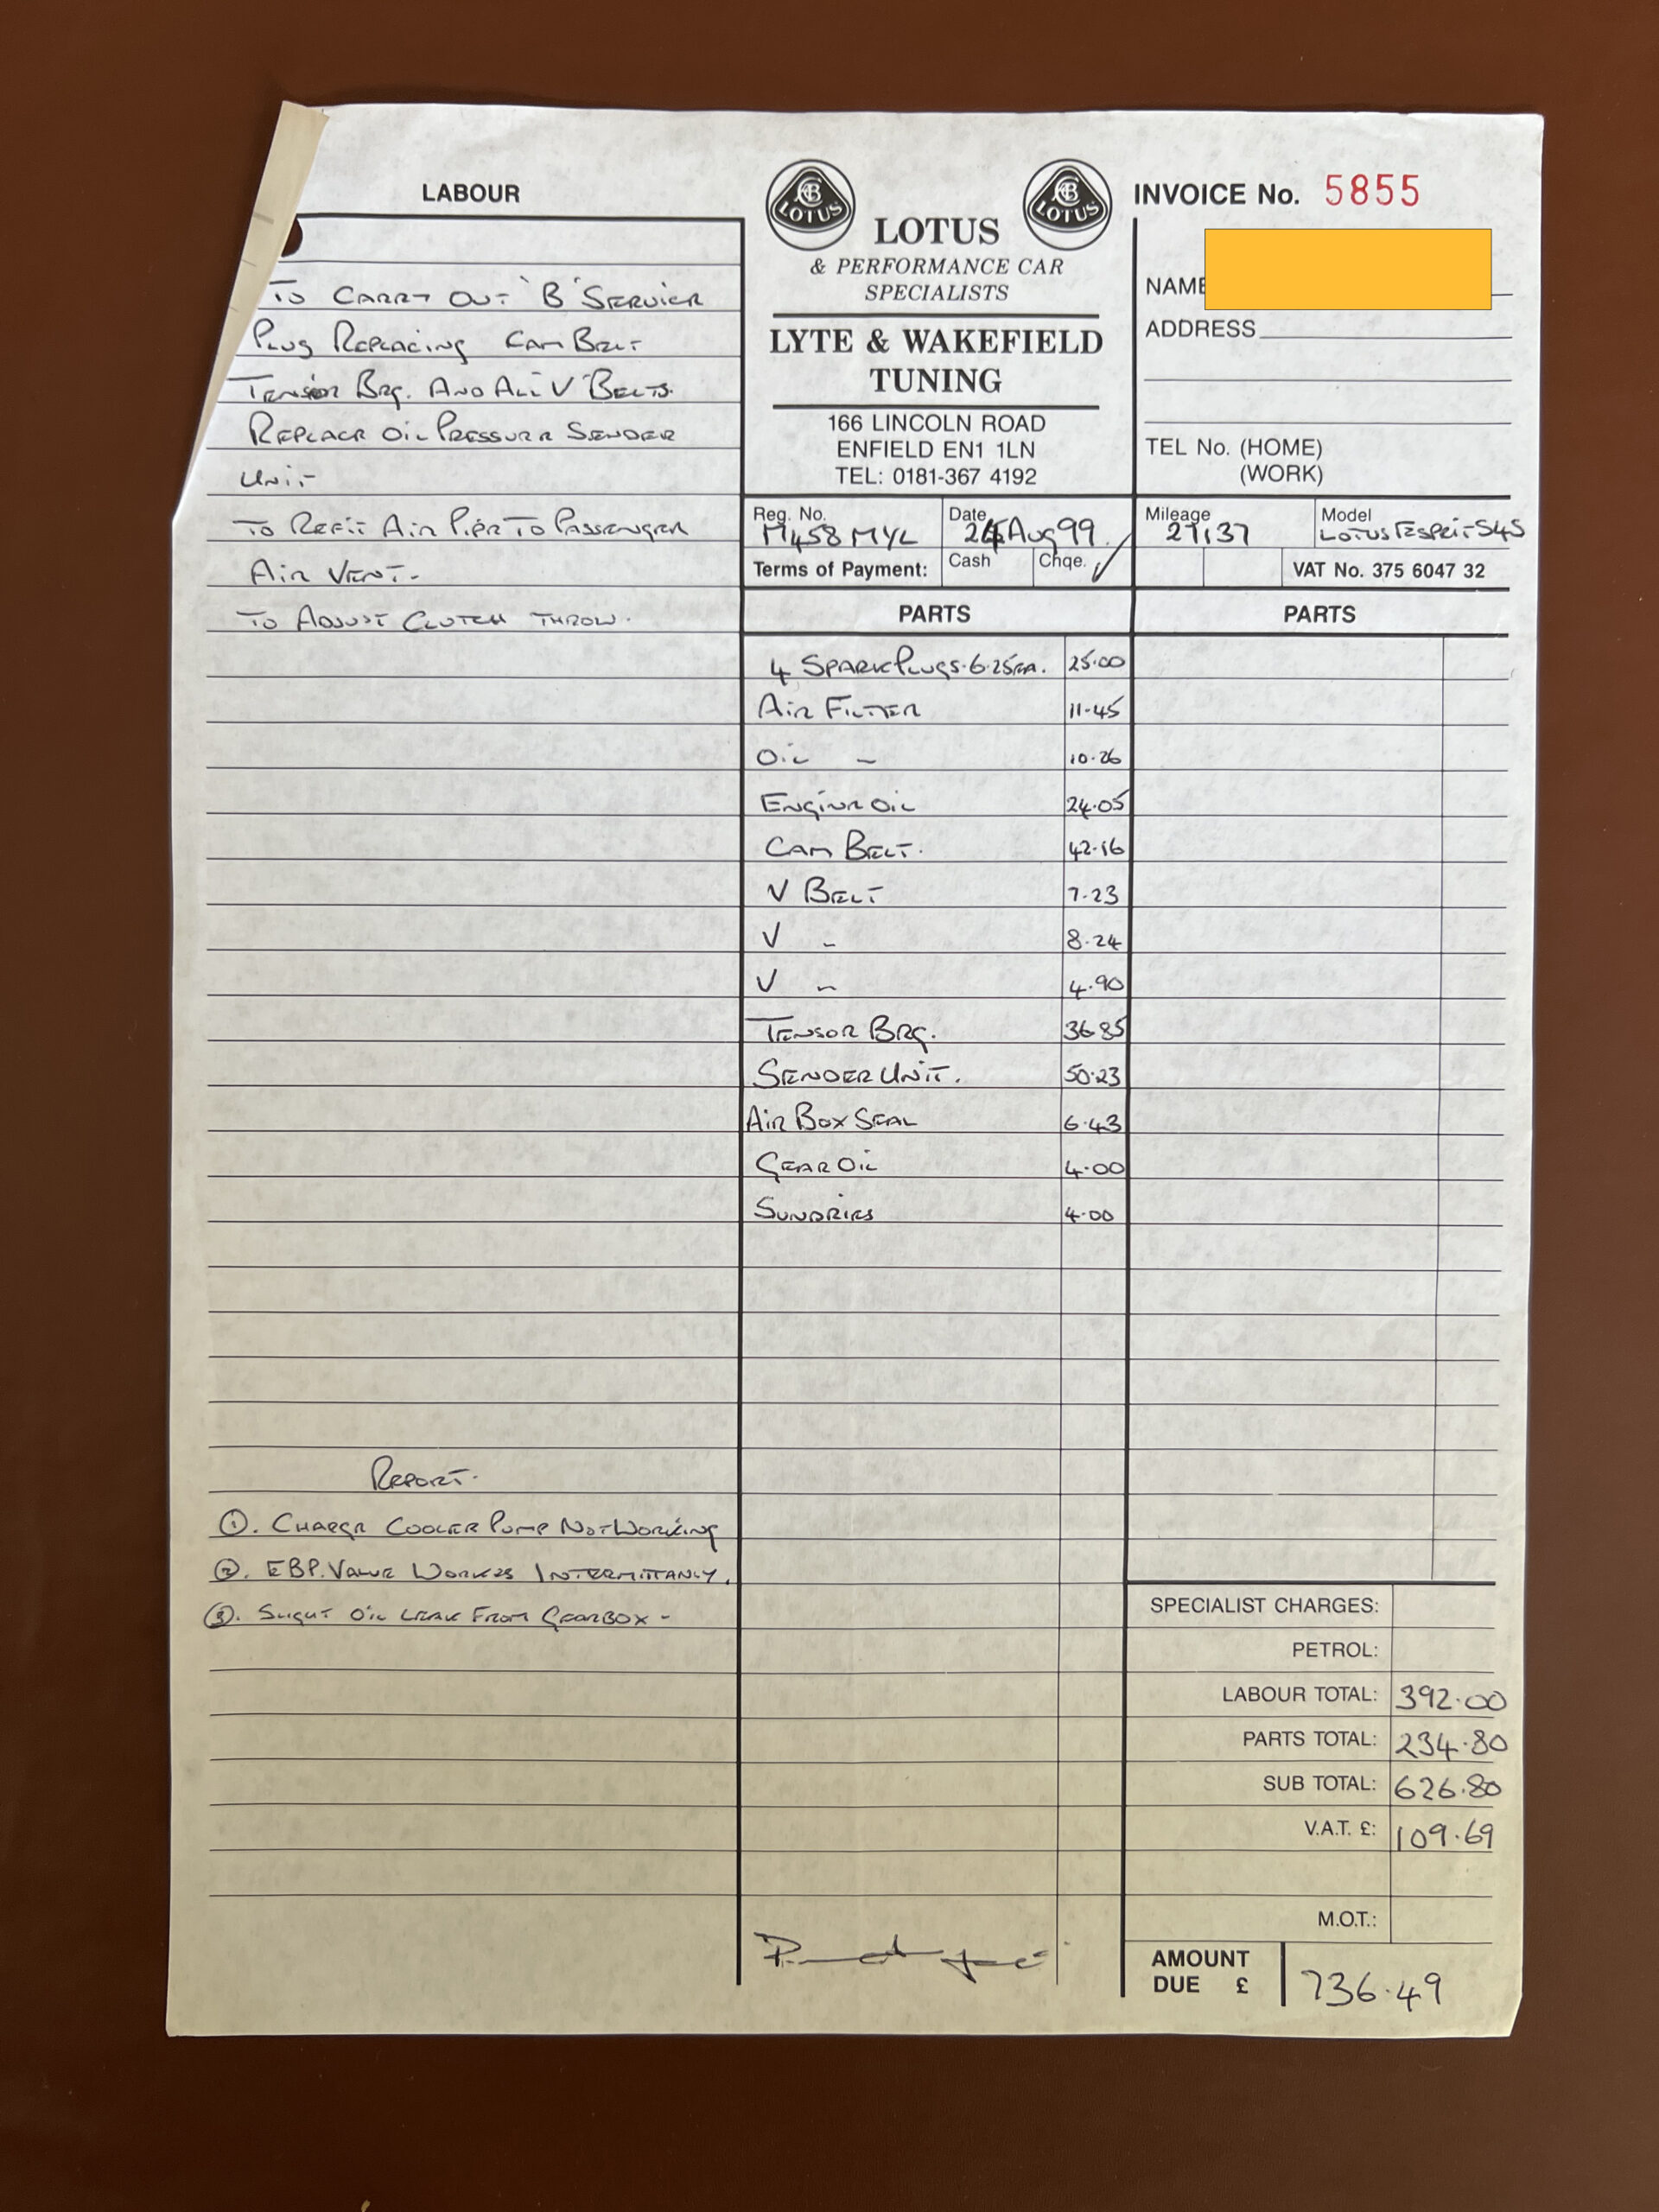 LABOUR
TO CARRY OUT 'B' SERVICE
PLUS REPLACING CAM BELT
TENSOR BRG. AND ALL V BELTS.
REPLACE OIL PRESSURE SENDER
UNIT
TO REFIT AIR PIPE TO PASSENGER
AIR VENT.
TO ADJUST CLUTCH THROW.
REPORT.
①. CHARGE COOLER PUMP NOT WORKING
②. EBP. VALVE WORKES INTERMITTANLY.
③. SLIGHT OIL LEAK FROM GEARBOX -
LOTUS LOTUS
LOTUS
& PERFORMANCE CAR
SPECIALISTS
LYTE & WAKEFIELD
TUNING
166 LINCOLN ROAD
ENFIELD EN1 1LN
TEL: 0181-367 4192
INVOICE No. 5855
NAME
ADDRESS
TEL No. (HOME)
(WORK)
Reg. No. Date Mileage Model
M458 MYL Aug 99 27137 LOTUS ESPRIT S4S
Terms of Payment: Cash Chqe. ✓ VAT No. 375 6047 32
PARTS PARTS
4 SPARK PLUGS. 6.25 EA. 25.00
AIR FILTER 11.45
OIL " 10.26
ENGINE OIL 24.05
CAM BELT. 42.16
V BELT 7.23
V " 8.24
V " 4.90
TENSOR BRG. 36.85
SENDER UNIT. 50.23
AIR BOX SEAL 6.43
GEAR OIL 4.00
SUNDRIES 4.00
SPECIALIST CHARGES:
PETROL:
LABOUR TOTAL: 392.00
PARTS TOTAL: 234.80
SUB TOTAL: 626.80
V.A.T. £: 109.69
M.O.T.:
AMOUNT
DUE £ 736.49